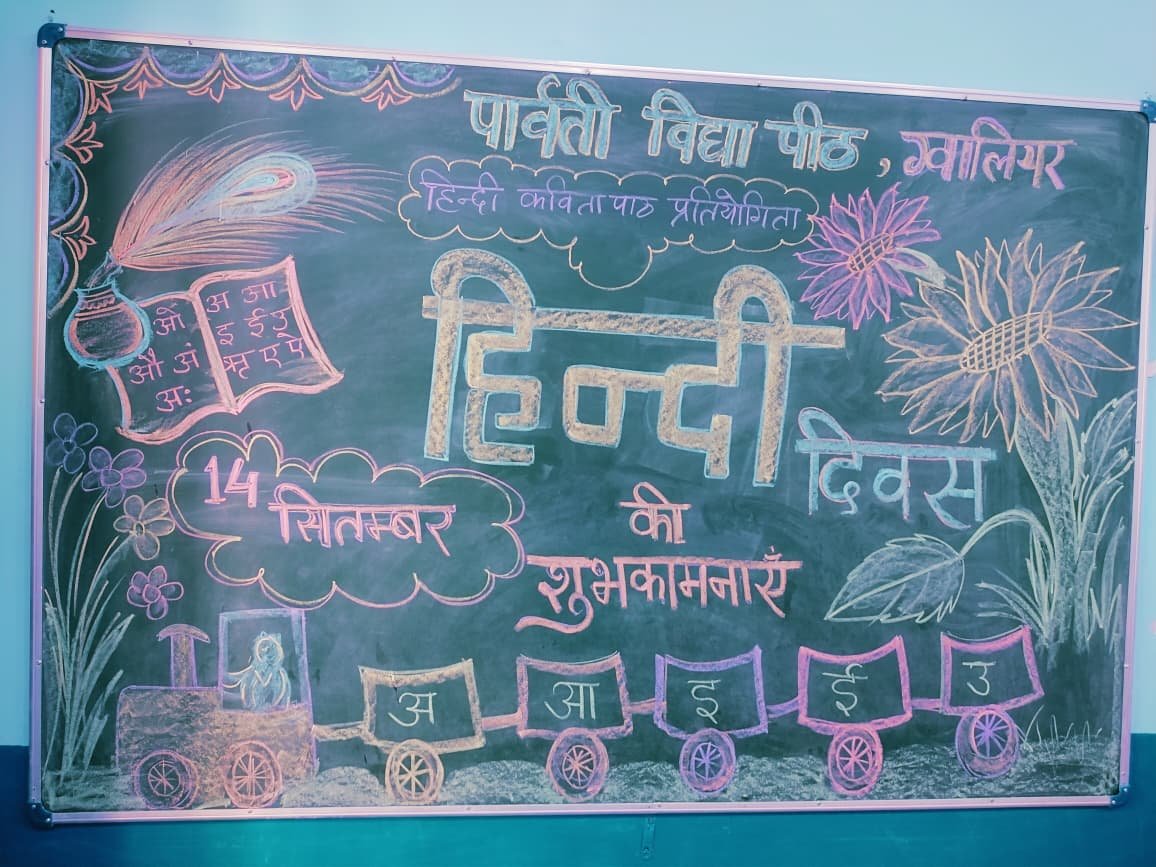 पार्वती विद्या पीठ, ग्वालियर
हिन्दी कविता पाठ प्रतियोगिता
हिन्दी
दिवस
की
शुभकामनाएँ
14 सितम्बर
ओ
औ अं
अः
अ आ
इ ई उ
ऋ ए ऐ
अ आ इ ई उ